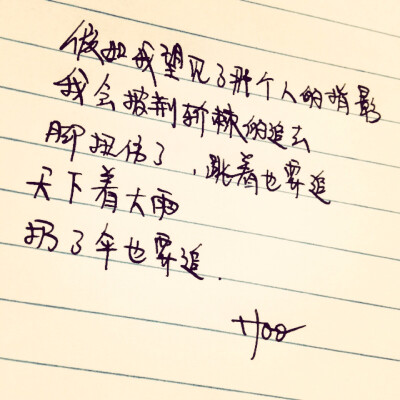 假如我望见了那个人的背影
我会披荆斩棘的追去
脚扭伤了，跳着也要追
天下着大雨
扔了伞也要追.